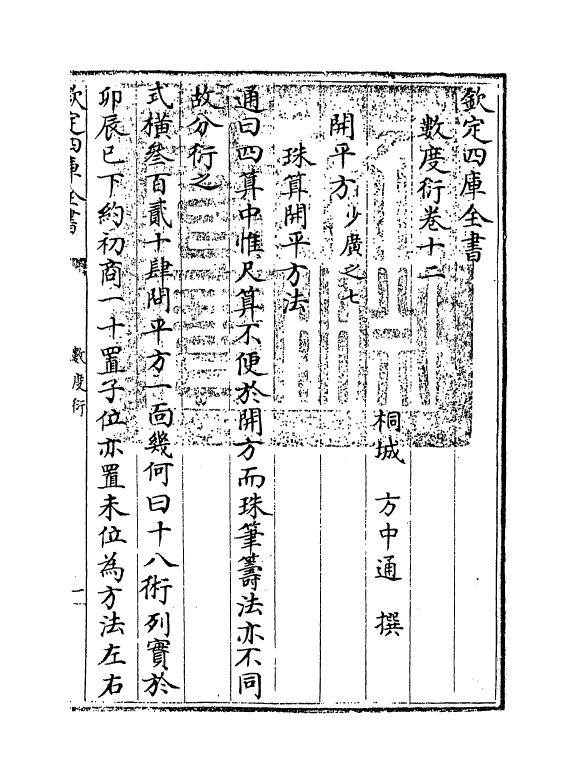 欽定四庫全書
數度衍卷十二
桐城　方中通　撰
開平方少廣之七
珠算開平方法
通曰四算中惟尺算不便於開方而珠筆籌法亦不同
故分衍之
式橫叄百貳十肆開平方一面幾何曰十八術列實於
卯辰巳下約初商一十置子位亦置未位為方法左右
欽定四庫全書
數度衍
一